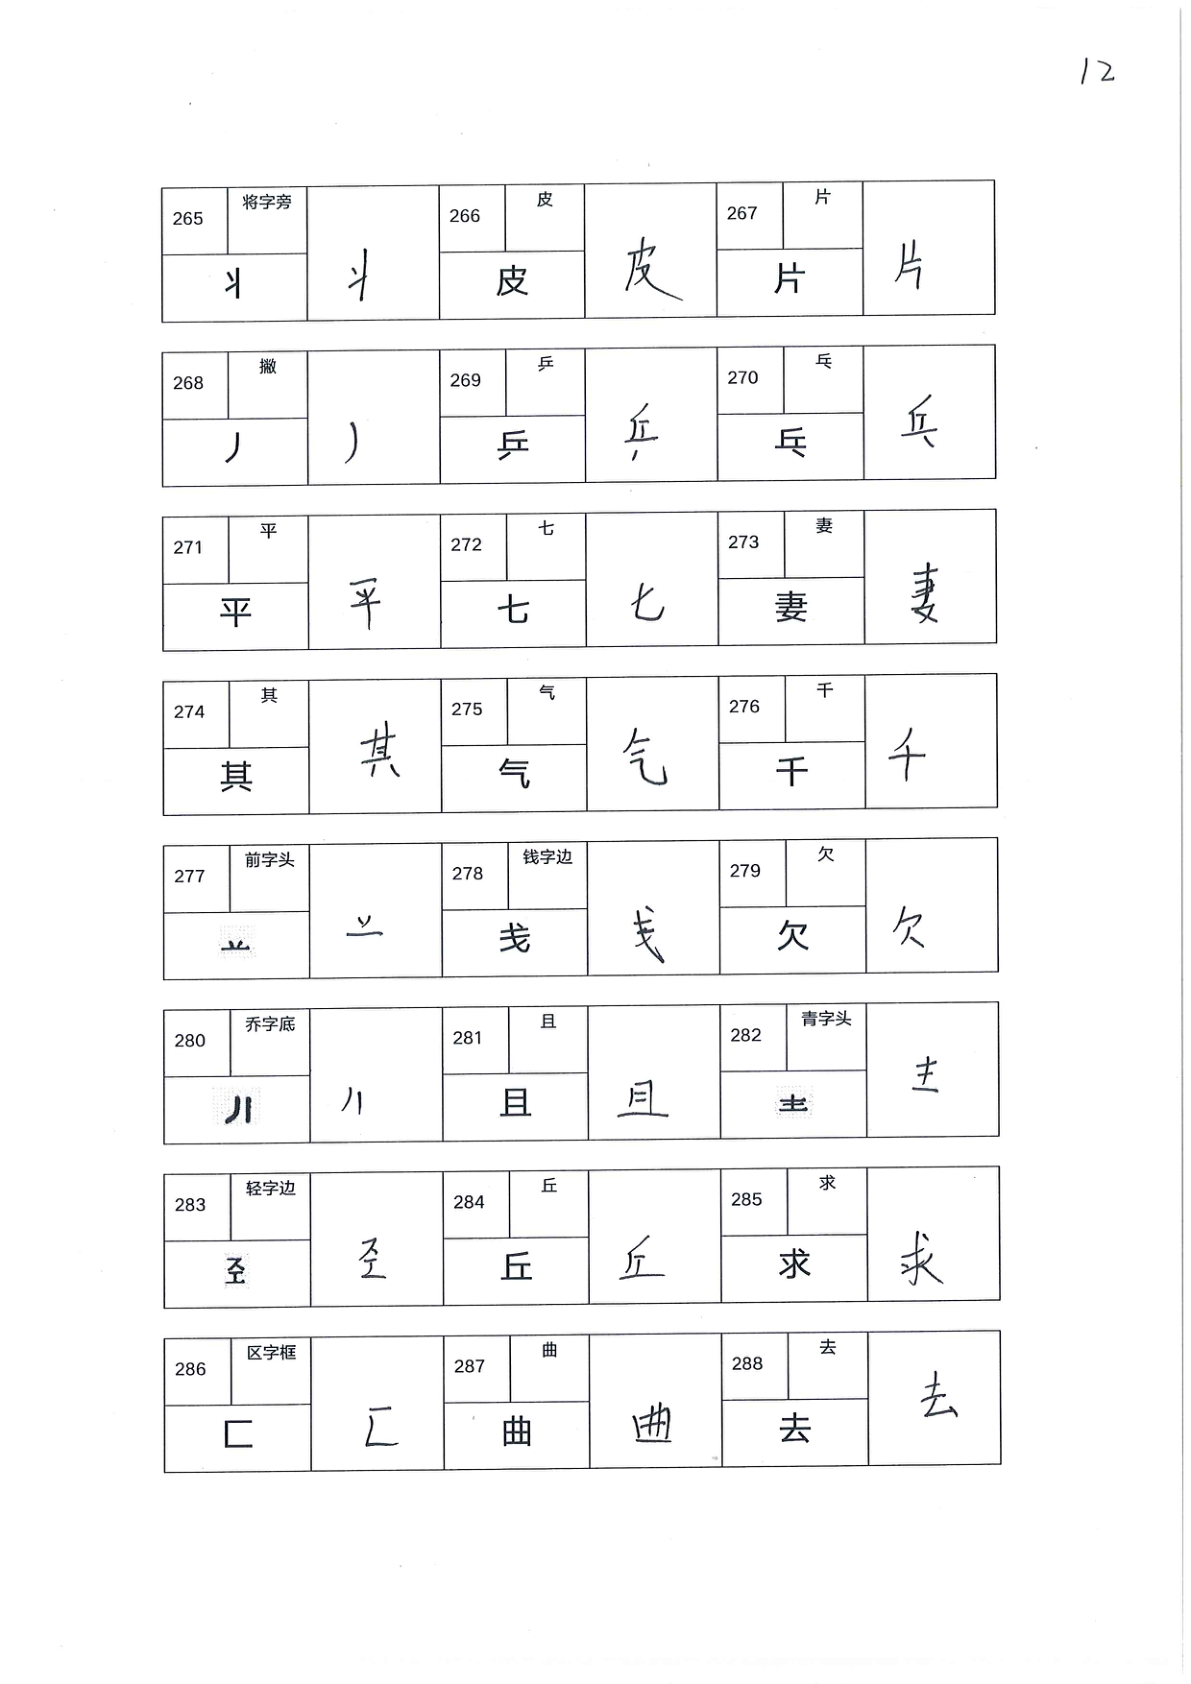 12
265 将字旁 丬 丬 266 皮 皮 皮 267 片 片 片
268 撇 丿 丿 269 乒 乒 乒 270 乓 乓 乓
271 平 平 平 272 七 七 七 273 妻 妻 妻
274 其 其 其 275 气 气 气 276 千 千 千
277 前字头 䒑 䒑 278 钱字边 戋 戋 279 欠 欠 欠
280 乔字底 丿丨 丿丨 281 且 且 且 282 青字头 龶 龶
283 轻字边 𢀖 𢀖 284 丘 丘 丘 285 求 求 求
286 区字框 匚 匚 287 曲 曲 曲 288 去 去 去